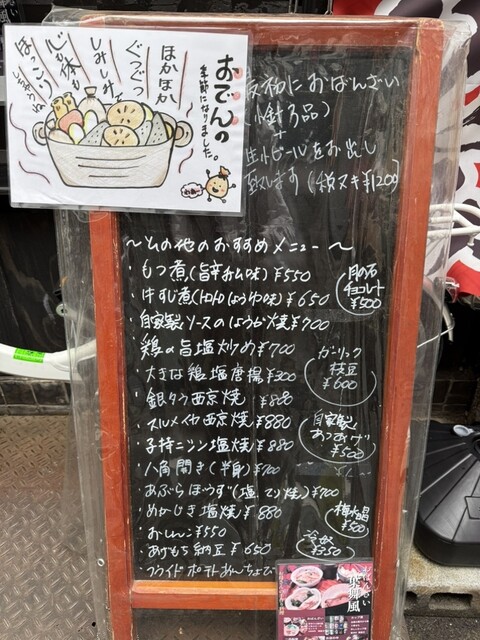 おでんの
季節になりました。
ほかほか
ぐつぐつ
しみしみ
心も体も
ほっこり
におばんざい
生小ビールをお出し
致します(税ヌキ¥1200)
～その他のおすすめメニュー～
・もつ煮(旨辛みそ味)¥550
¥650
・自家製ソースのしょうが焼¥700
・鶏の旨塩炒め¥700
・大きな鶏塩唐揚¥300
・銀タラ西京焼 ¥880
・スルメイカ西京焼¥880
・子持ニシン塩焼¥880
・八角開き(半身)¥700
・あぶらぼうず(塩、てり焼)¥700
・めかじき塩焼¥880
・おしんこ¥550
・あげもち納豆¥650
・フライドポテトめんちょび
月の石
チョコレート
¥500
ガーリック
枝豆
¥600
自家製
あつあげ
¥500
梅水晶
¥500
冷奴
¥350
おばんざい
葉舞風